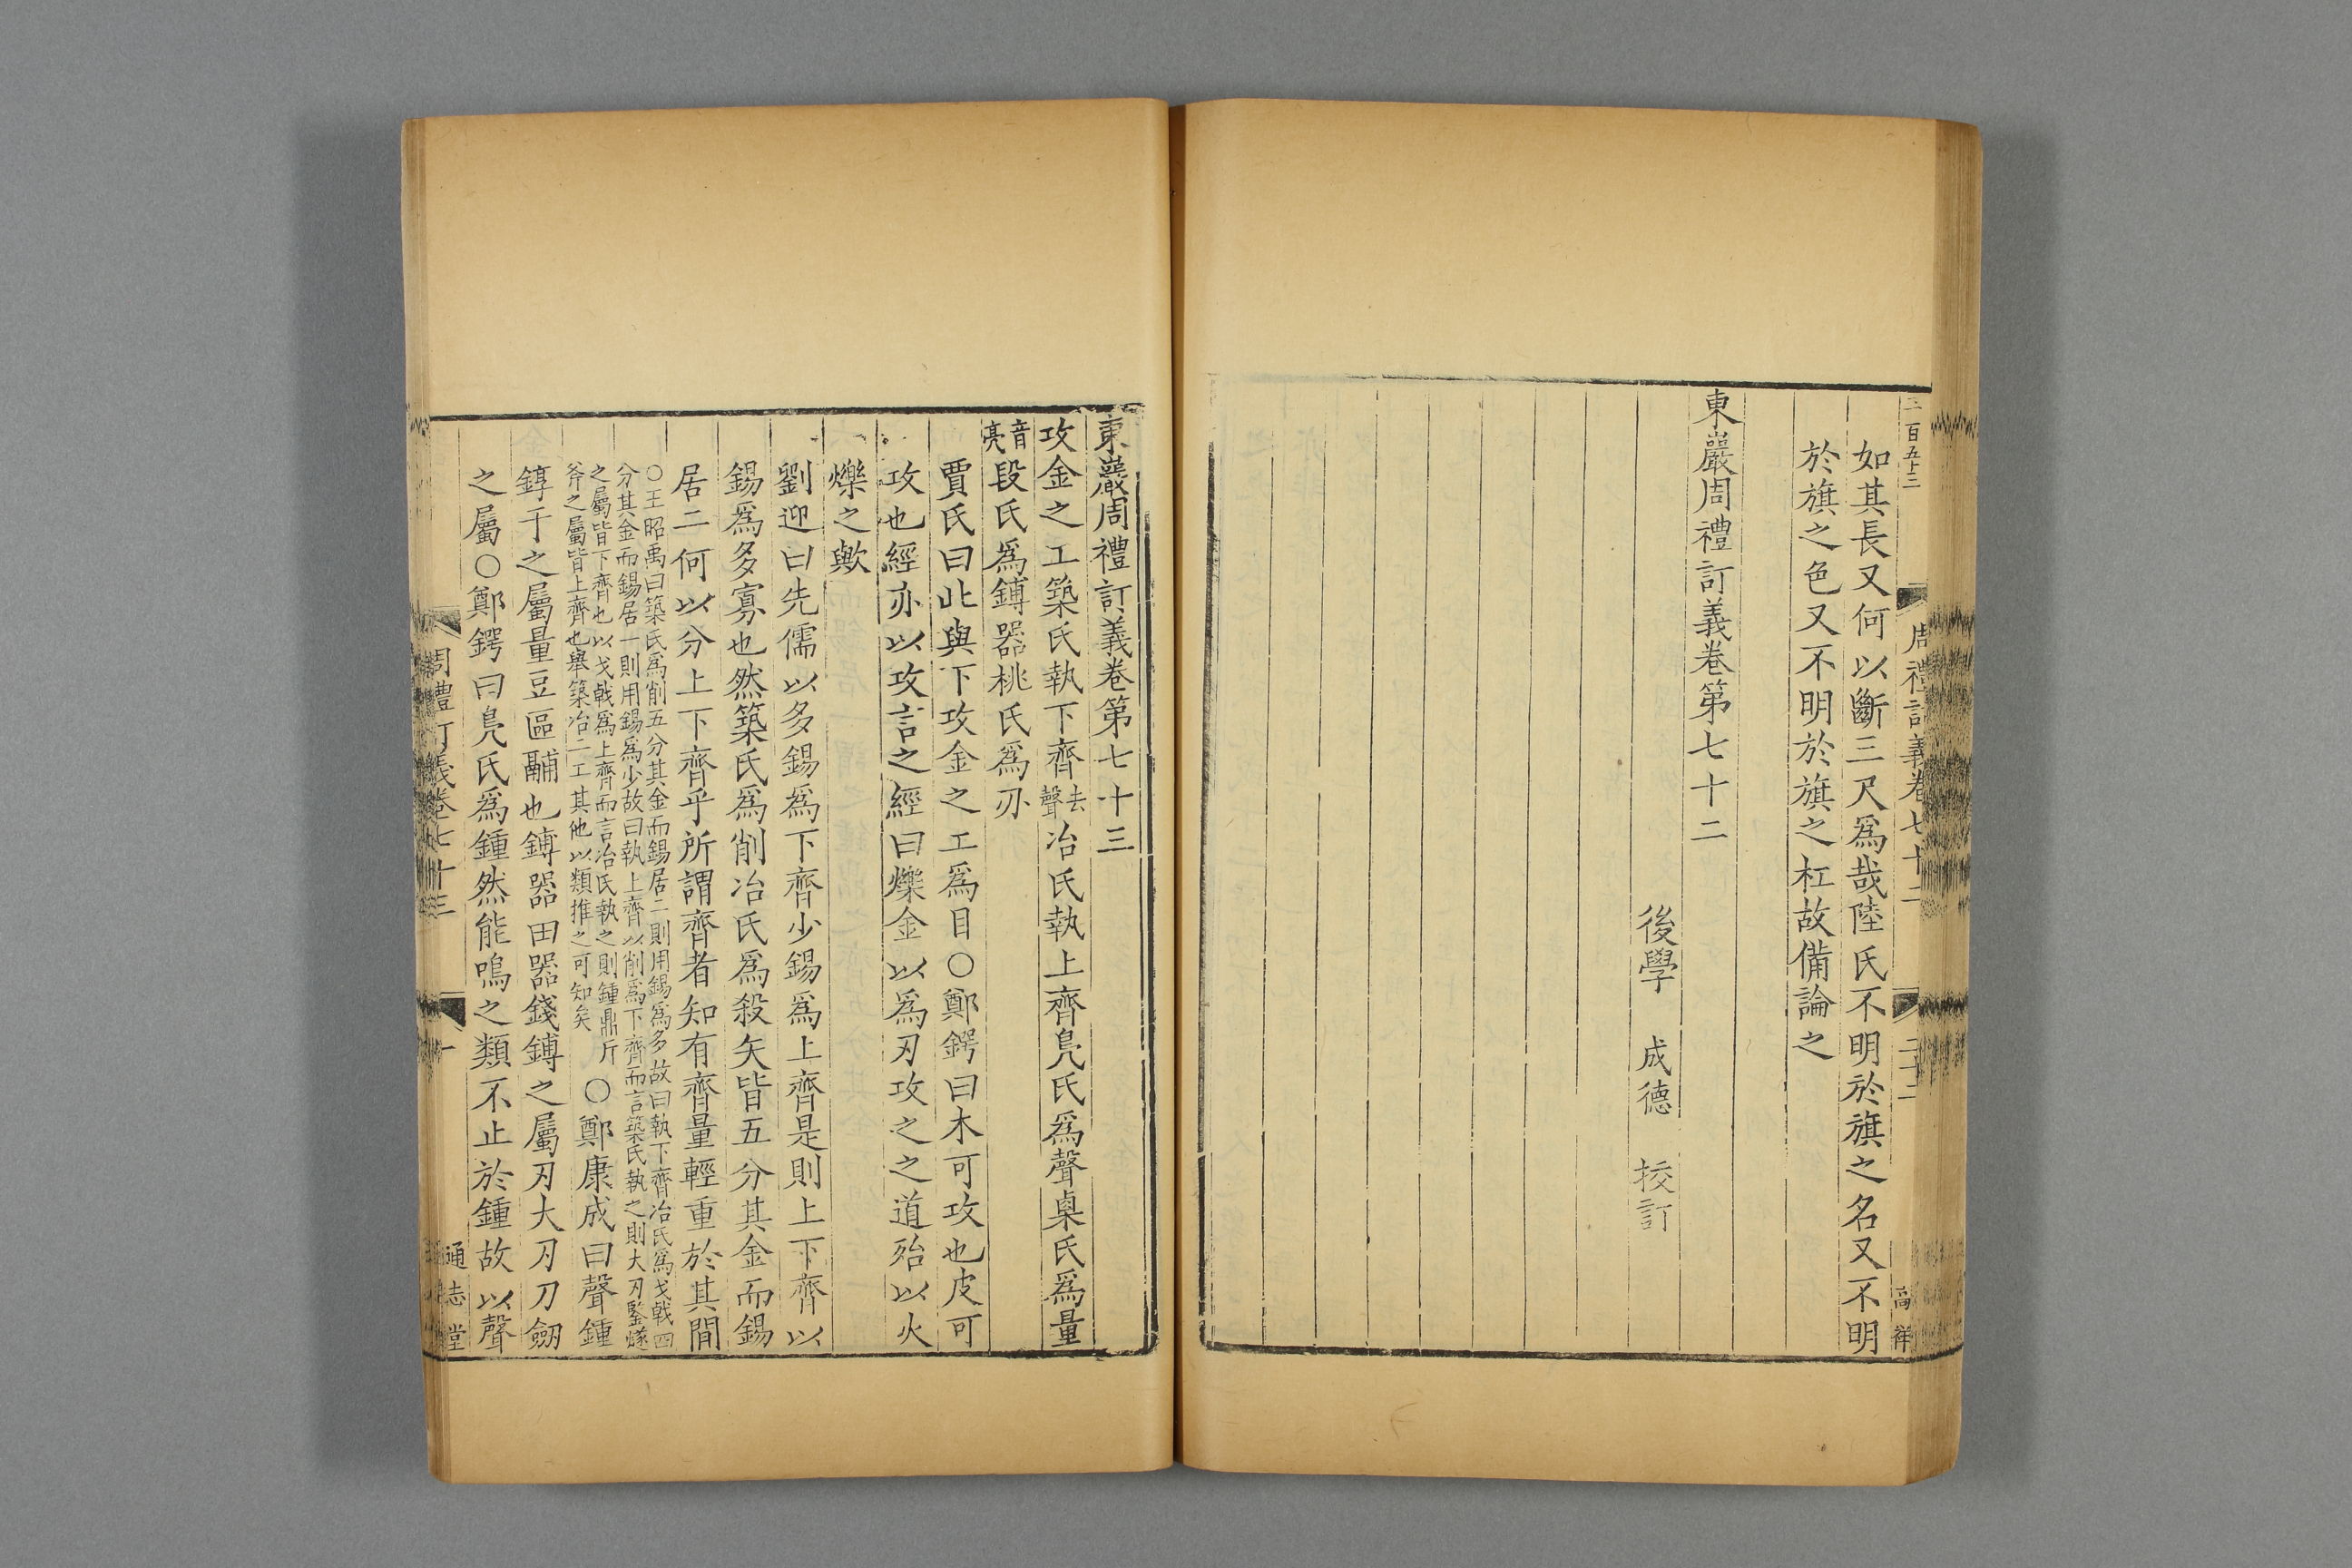 三百五十三
周禮訂義卷七十二
二十二
高祥
如其長又何以斷三尺爲哉陸氏不明於旗之名又不明
於旗之色又不明於旗之杠故備論之
東巖周禮訂義卷第七十二
後學 成德 挍訂
東巖周禮訂義卷第七十三
攻金之工築氏執下齊去聲冶氏執上齊鳧氏爲聲㮚氏爲量
音亮段氏爲鎛器桃氏爲刅
賈氏曰此與下攻金之工爲目〇鄭鍔曰木可攻也皮可
攻也經亦以攻言之經曰爍金以爲刃攻之之道殆以火
爍之歟
劉迎曰先儒以多錫爲下齊少錫爲上齊是則上下齊以
錫爲多寡也然築氏爲削冶氏爲殺矢皆五分其金而錫
居二何以分上下齊乎所謂齊者知有齊量輕重於其間
〇王昭禹曰築氏爲削五分其金而錫居二則用錫爲多故曰執下齊冶氏爲戈戟四
分其金而錫居一則用錫爲少故曰執上齊以削爲下齊而言築氏執之則大刃鑒燧
之屬皆下齊也以戈戟爲上齊而言冶氏執之則鍾鼎斤
斧之屬皆上齊也舉築冶二工其他以類推之可知矣
〇鄭康成曰聲鍾
錞于之屬量豆區鬴也鎛器田器錢鎛之屬刃大刀刀劒
之屬〇鄭鍔曰鳧氏爲鍾然能鳴之類不止於鍾故以聲
周禮訂義卷七十三
一
通志堂